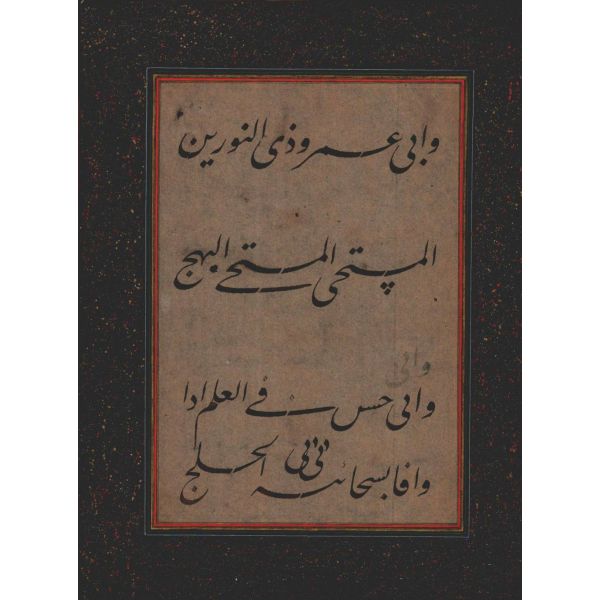 وابی عمرو ذی النورین
المستحی المستحی البهج
وابی
وابی حسن فی العلم اذا
وافا بسحائبه الخلج